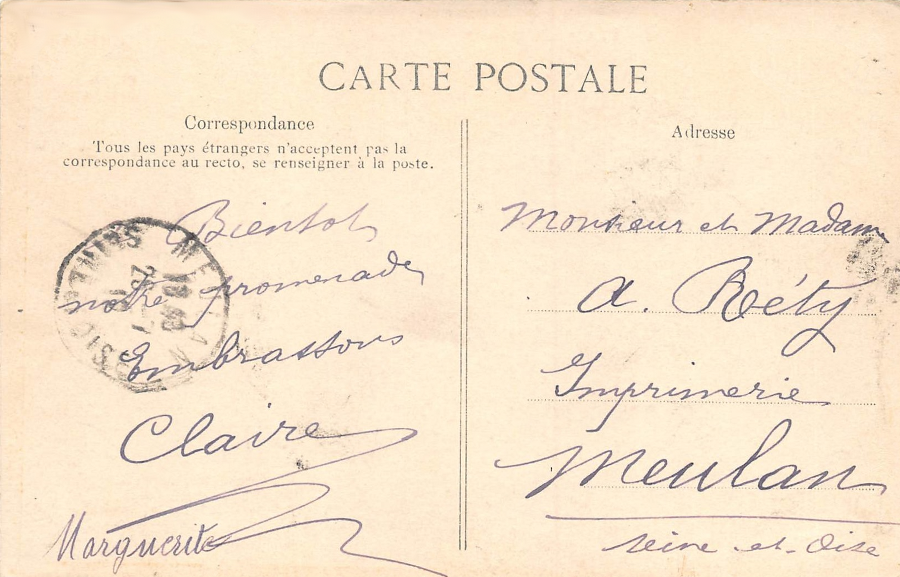 CARTE POSTALE
Correspondance
Tous les pays étrangers n'acceptent pas la
correspondance au recto, se renseigner à la poste.
Bientot
notre promenade
Embrassons
Claire
Marguerite
MEULAN
SEINE
18 40
25
Adresse
Monsieur et Madame
A. Réty
Imprimerie
Meulan
Seine et Oise